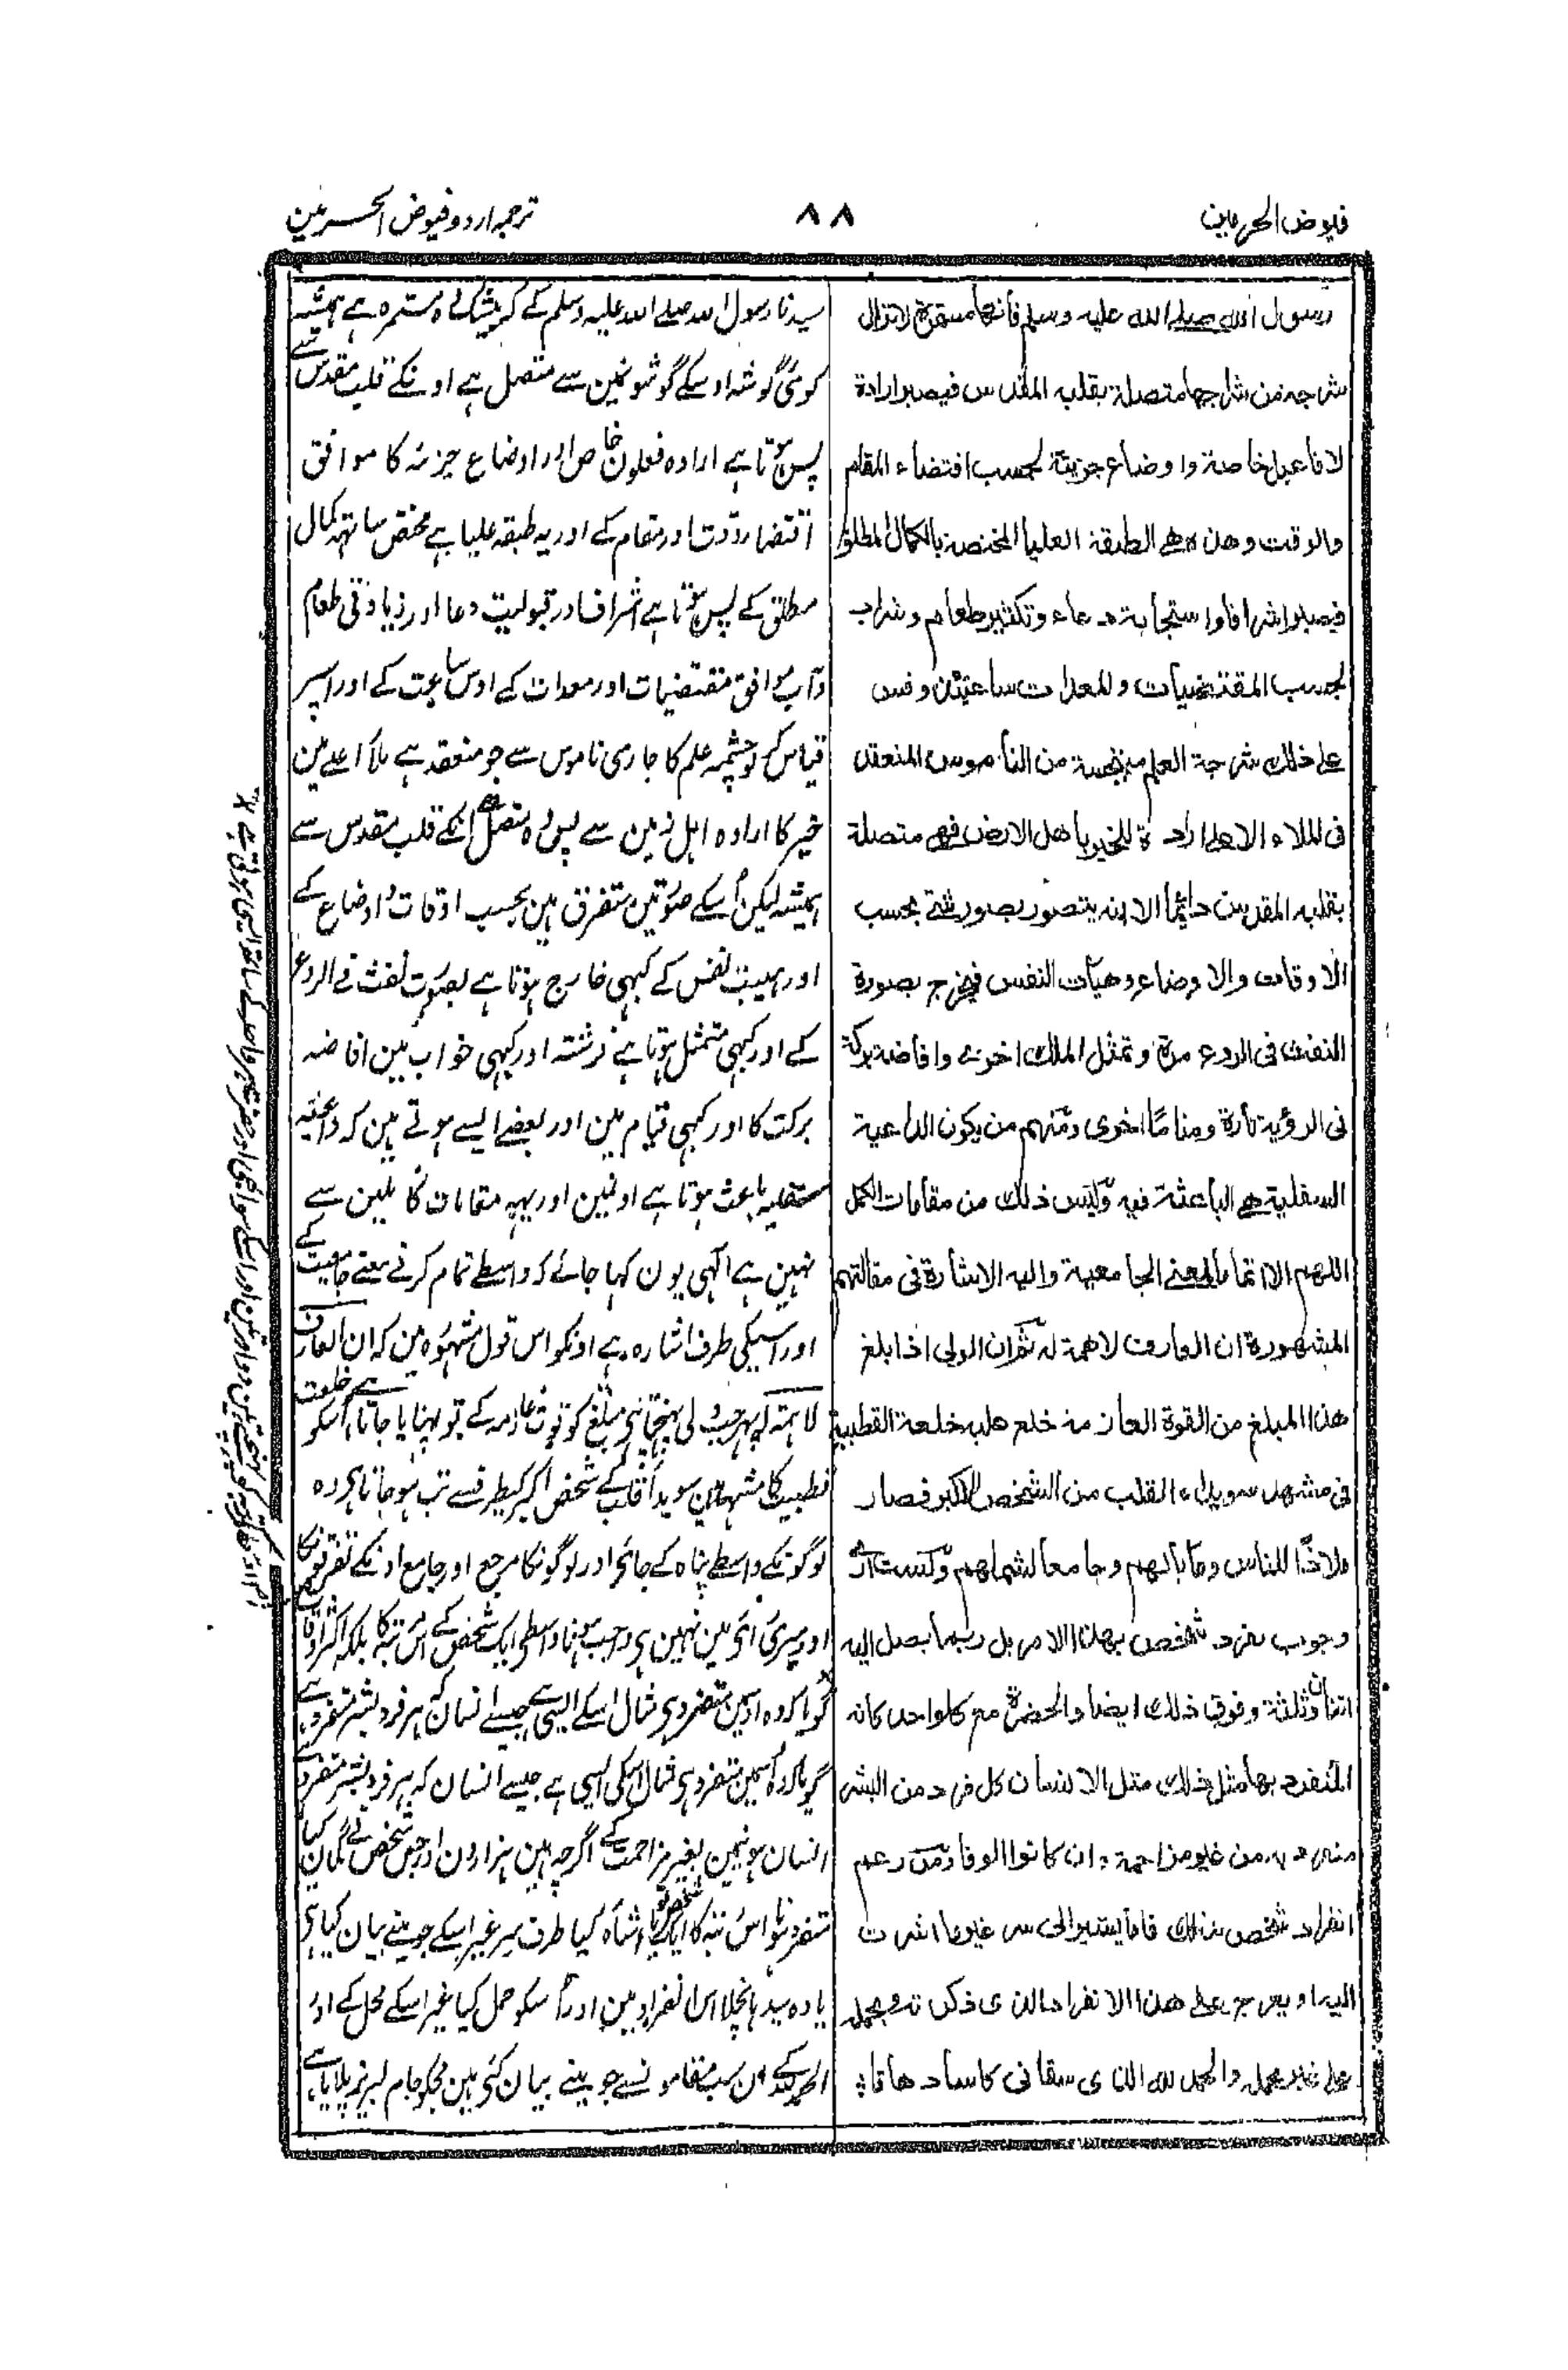 فيوض الحرمين
٨٨
ترجمہ اردو فیوض الحرمین
رسول الله صلے الله عليه وسلم فأنها مستمرة لا تزال
شرجة من شراجها متصلة بقلبه المقدس فيصير ارادة
لافاعيل خاصة واوضاع جزيئة بحسب اقتضاء المقام
والوقت وهذه هے الطبقة العليا المختصة بالكمال المطلق
فيصير اشرافا واستجابة دعاء وتكثير طعام وشراب
بحسب المقتضيات والمعدات ساعتئذ وقس
علے ذلك شرجة العلم من الناموس المنعقد
فى الملاء الاعلے ارادة للخير باهل الارض فهى متصلة
بقلبه المقدس دائمًا الا انه يتصور بصور شتے بحسب
الاوقات والاوضاع وهيآت النفس فيخرج بصورة
النفث فى الروع مرة وتمثل الملك اخرى وافاضة بركة
فى الرؤية تارة ومنامًا اخرى ومنهم من يكون الداعية
السفلية هے الباعثة فيه وليس ذلك من مقامات الكمل
اللهم الا اتماما لمعنے الجامعية واليه الاشارة فى مقالتهم
المشهورة ان العارف لا همة له ثم ان الولى اذا بلغ
هذا المبلغ من القوة العازمة خلع عليه خلعة القطبية
فى مشهد سويداء القلب من الشخص الاكبر فصار
ملاذًا للناس ومآبا لهم وجامعا لشملهم ولست ارى
وجوب تفرد شخص بهذا الامر بل ربما يصل اليه
اثنان وثلثة وفوق ذلك ايضا والحضرة مع كل واحد كانه
المتفرد بها مثل ذلك مثل الانسان كل فرد من البشر
متفرد به من غير مزاحمة وان كانوا الوفا ومن زعم
انفراد شخص بذلك فاما يشير الى سر غير ما اشرت
اليه او يعرج على هذا الانفراد الذى ذكرته ويحمله
على غير محمله والحمد لله الذى سقانى كاسا دهاقا
سیدنا رسول الله صلے الله علیہ وسلم کے کہ بیشک وہ مستمرہ ہے ہمیشہ
کوئی گوشہ اوسکے گوشونمین سے متصل ہے اونکے قلب مقدس سے
پس ہوتا ہے ارادہ فعلون خاص اور اوضاع جزئہ کا موافق
اقتضاء وقت اور مقام کے اور یہ طبقہ علیا ہے مختص ساتھ کمال
مطلق کے پس ہوتا ہے اشراف اور قبولیت دعا اور زیادتی طعام
وآب موافق مقتضیات اور معدات کے اوس ساعت کے اور اسپر
قیاس کر تو چشمہ علم کا جاری ناموس سے جو منعقد ہے ملاء اعلے مین
خیر کا ارادہ اہل زمین سے پس وہ متصل ہے انکے قلب مقدس سے
ہمیشہ لیکن اسکے صورتین متفرق ہین بحسب اوقات و اوضاع کے
اور ہیئت نفس کے کبہی خارج ہوتا ہے بصورت نفث فے الروع
کے اور کبہی متمثل ہوتا ہے فرشتہ اور کبہی خواب مین افاضہ
برکت کا اور کبہی قیام مین اور بعضے ایسے ہوتے ہین کہ داعیہ
سفلیہ باعث ہوتا ہے اونمین اور یہہ مقامات کاملین سے
نہین ہے الٰہی یون کہا جائے کہ واسطے تمام کرنے معنے جامعیت کے
اور اسیکی طرف اشارہ ہے اونکو اس قول مشہورہ مین کہ ان العارف
لا ہمة لہ پہر جب ولی پہنچتا ہی مبلغ کو قوت عازمہ کے تو پہنایا جاتا ہے اسکو خلعت
قطبیت کا مشہد مین سویداء قلب کے شخص اکبر کیطرف سے تب ہوجاتا ہی وہ
لوگونکے واسطے پناہ کے جا ہی اور لوگونکا مرجع اور جامع اونکے تفرقونکا
اور میری رای مین نہین ہی واجب ہونا واسطی ایک شخص کے اس مرتبہ کا بلکہ اکثر اوقات
گویا کہ وہ اوسمین متفرد ہی مثال اسکے ایسی ہے جیسے انسان کہ ہر فرد بشر متفرد ہے
گویا کہ وہ اسمین متفرد ہی مثال اسکی ایسی ہے جیسے انسان کہ ہر فرد بشر متفرد ہے
انسان ہونیمین بغیر مزاحمت کے اگرچہ ہین ہزارون اور جس شخص نے گمان کیا
متفرد ہونا اس رتبہ کا ایک شخص کا تو یا اشارہ کیا طرف سر غیر اسکے جو مینے بیان کیا ہی
یا وہ سیدہا نچلا اس انفراد مین اور اسکو حمل کیا غیر اسکے محل کے اور
الحمد للہ کے ان سب مقامونسے جو مینے بیان کئی ہین مجکو جام لبریز پلایا ہے